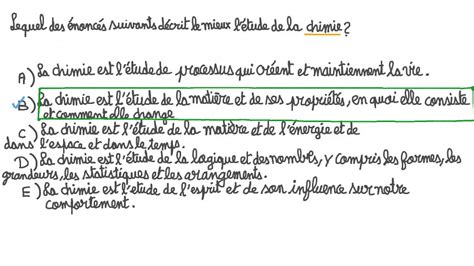 Lequel des énoncés suivants décrit le mieux l'étude de la chimie ?
A) La chimie est l'étude de processus qui créent et maintiennent la vie.
B) La chimie est l'étude de la matière et de ses propriétés, en quoi elle consiste
et comment elle change
C) La chimie est l'étude de la matière et de l'énergie et de
dans l'espace et dans le temps.
D) La chimie est l'étude de la logique et des nombres, y compris les formes, les
grandeurs, les statistiques et les arangements.
E) La chimie est l'étude de l'esprit et de son influence sur notre
comportement.